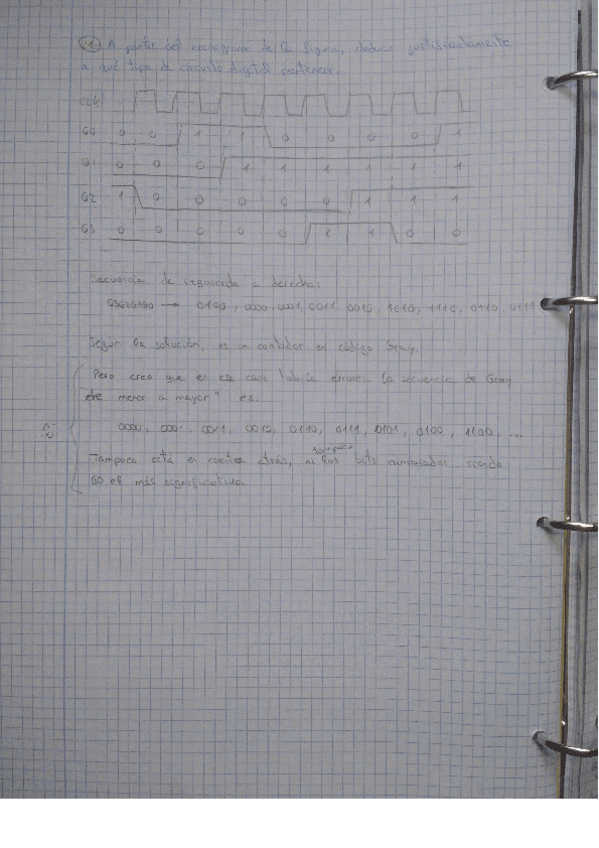 ① A partir del cronograma de la figura, deducir justificadamente
a qué tipo de circuito digital pertenece.
CLK
Q0 0 0 1 1 0 0 0 0 1
Q1 0 0 0 1 1 1 1 1 1
Q2 1 0 0 0 0 0 1 1 1
Q3 0 0 0 0 0 1 1 0 0
Secuencia de izquierda a derecha:
Q3Q2Q1Q0 → 0100, 0000, 0001, 0011, 0010, 1010, 1110, 0110, 0111
Según la solución, es un contador en código Gray.
Pero creo que en ese caso habría errores. La secuencia de Gray
de menor a mayor" es:
0000, 0001, 0011, 0010, 0110, 0111, 0101, 0100, 1100, ...
Tampoco está en cuenta atrás, ni los bits cambiados siendo
Q0 el más significativo.